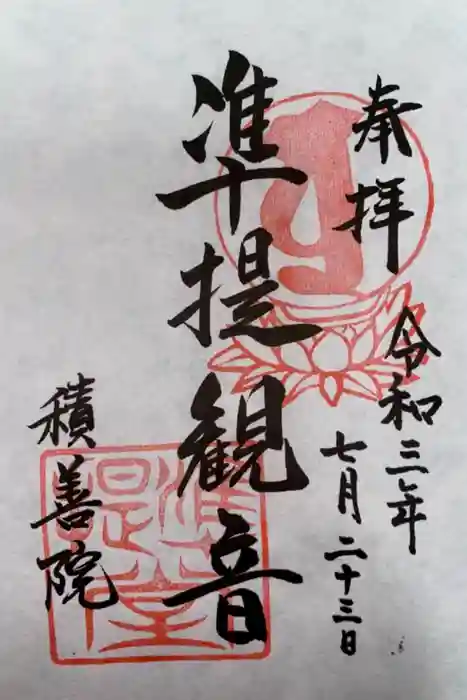 奉拝
令和三年
七月二十三日
準提観音
積善院